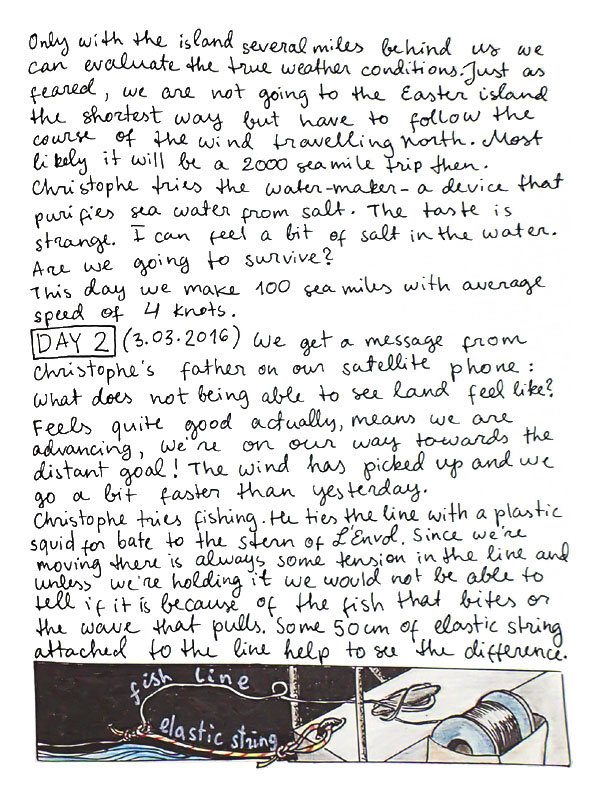 Only with the island several miles behind us we
can evaluate the true weather conditions. Just as
feared, we are not going to the Easter island
the shortest way but have to follow the
course of the wind travelling North. Most
likely it will be a 2000 sea mile trip then.
Christophe tries the water-maker - a device that
purifies sea water from salt. The taste is
strange. I can feel a bit of salt in the water.
Are we going to survive?
This day we make 100 sea miles with average
speed of 4 knots.
DAY 2 (3.03.2016) We get a message from
Christophe's father on our satellite phone:
What does not being able to see land feel like?
Feels quite good actually, means we are
advancing, we're on our way towards the
distant goal! The wind has picked up and we
go a bit faster than yesterday.
Christophe tries fishing. He ties the line with a plastic
squid for bate to the stern of L'Envol. Since we're
moving there is always some tension in the line and
unless we're holding it we would not be able to
tell if it is because of the fish that bites or
the wave that pulls. Some 50cm of elastic string
attached to the line help to see the difference.
fish line
elastic string